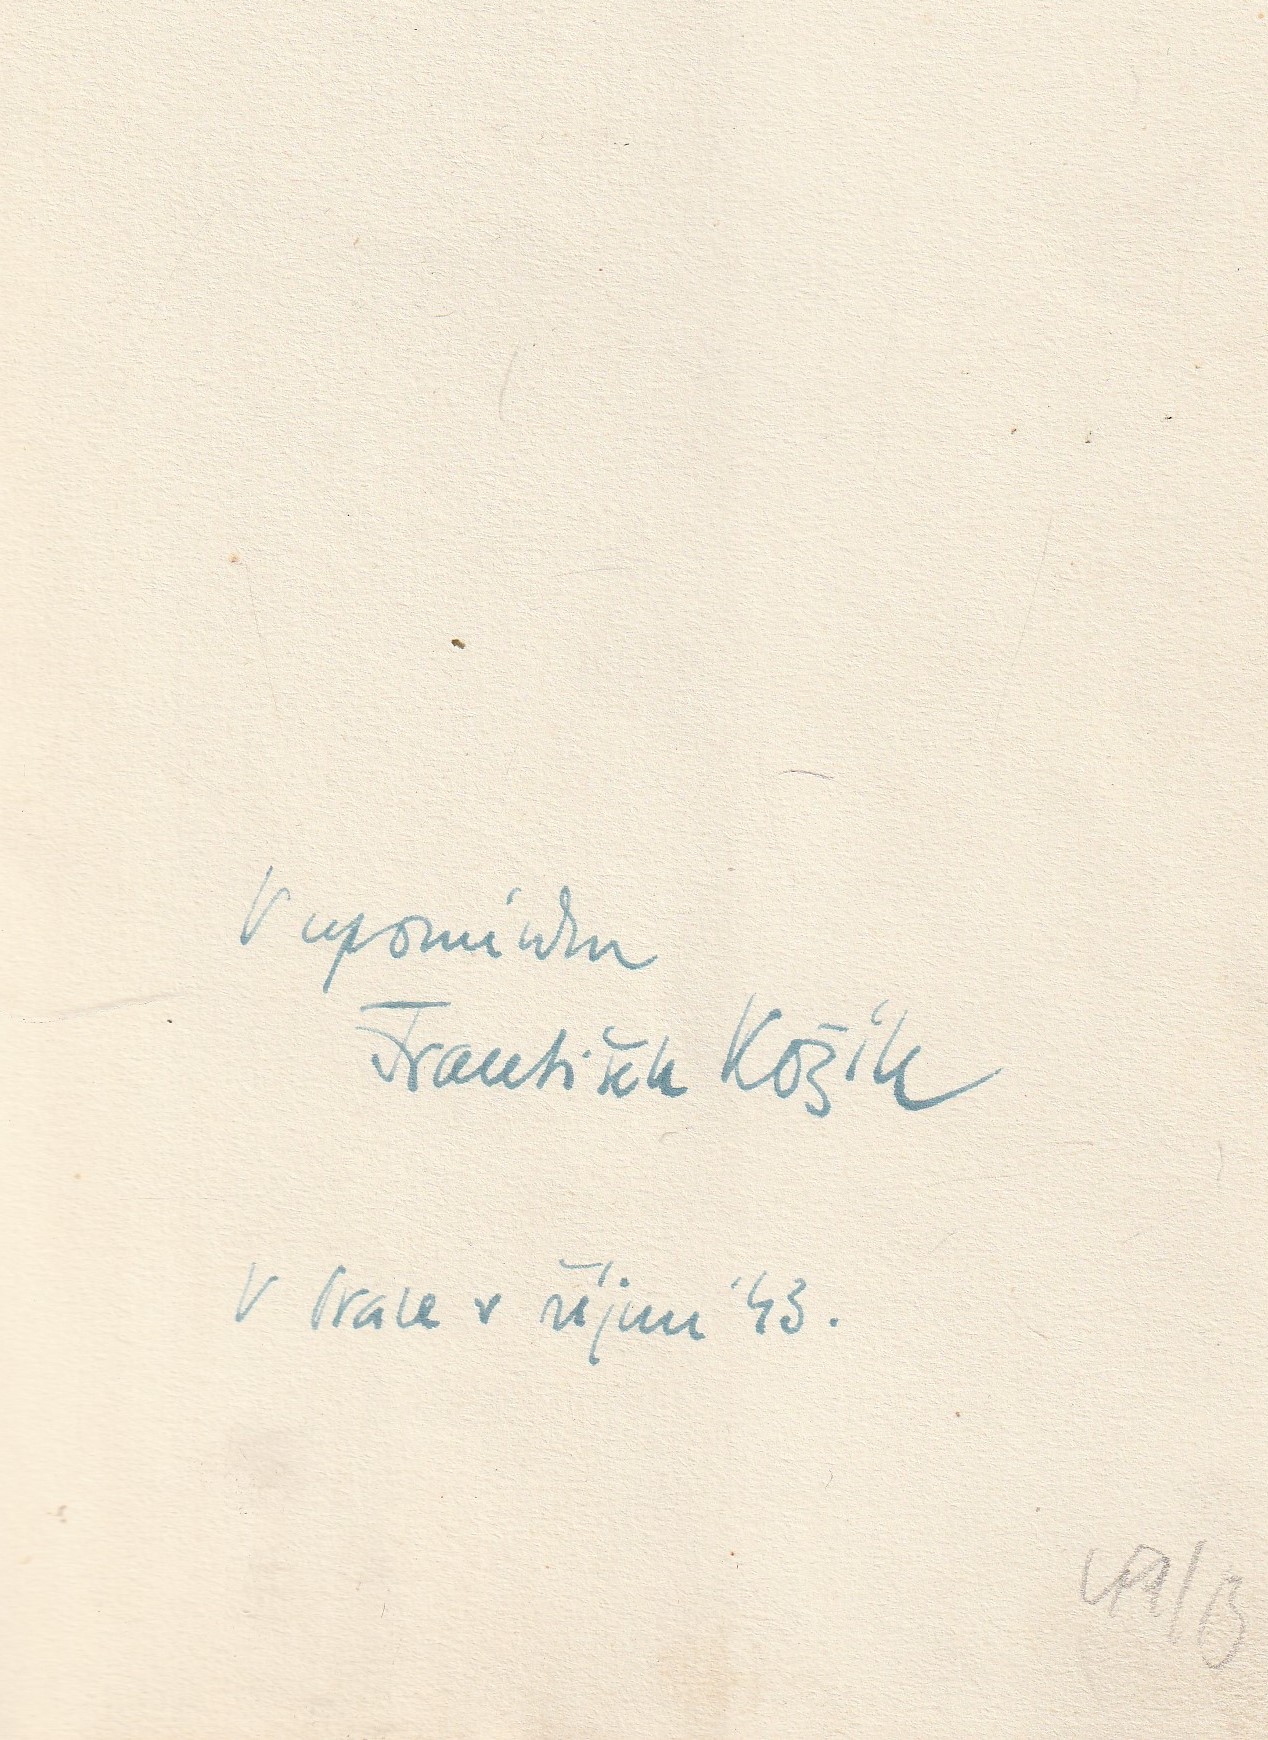 V upomínku
František Kožík
V Praze v říjnu '43.